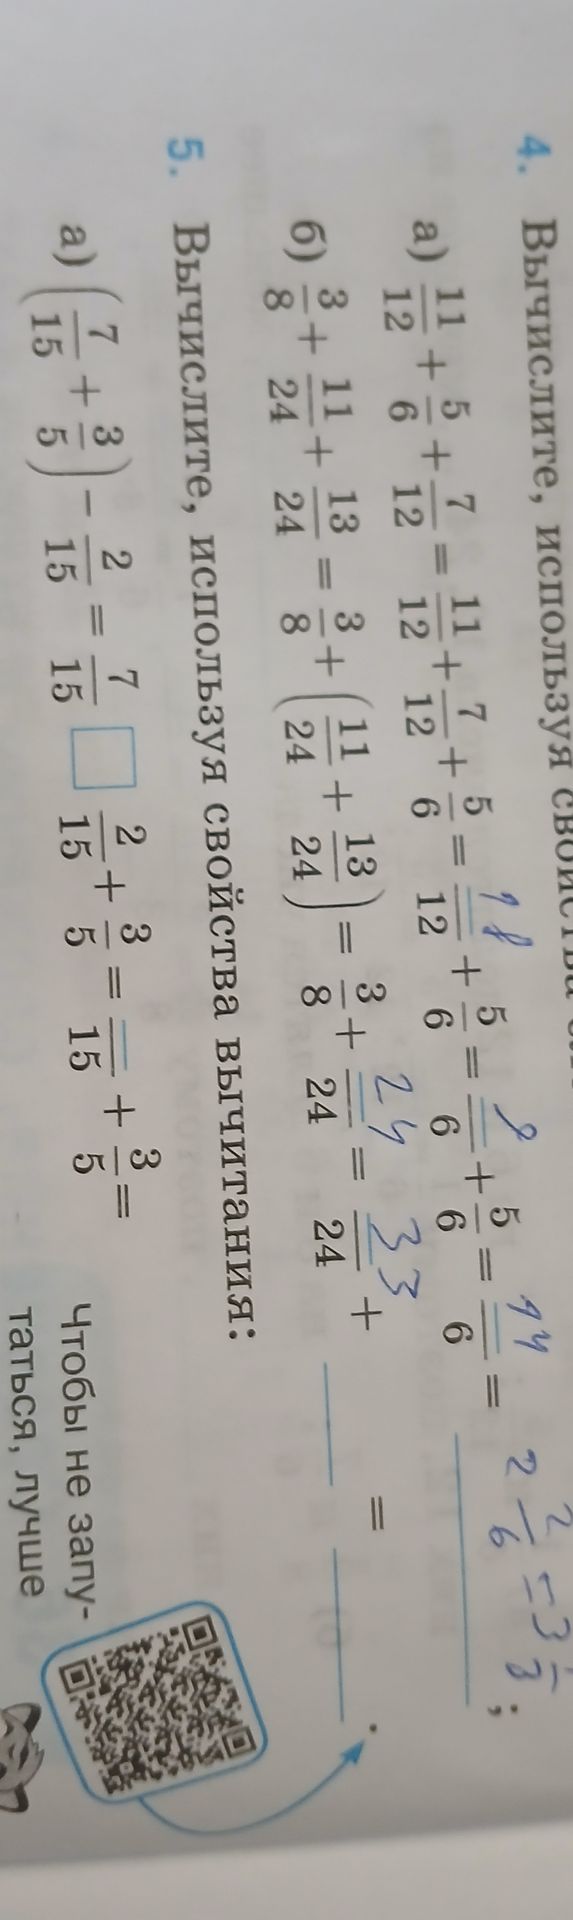 4. Вычислите, используя свойства
а) 11/12 + 5/6 + 7/12 = 11/12 + 7/12 + 5/6 = 18/12 + 5/6 = 9/6 + 5/6 = 14/6 = 2 2/6 = 3 1/3;
б) 3/8 + 11/24 + 13/24 = 3/8 + (11/24 + 13/24) = 3/8 + 24/24 = 33/24 + ___ = ___.
5. Вычислите, используя свойства вычитания:
а) (7/15 + 3/5) − 2/15 = 7/15 □ 2/15 + 3/5 = __/15 + 3/5 =
Чтобы не запу-
таться, лучше